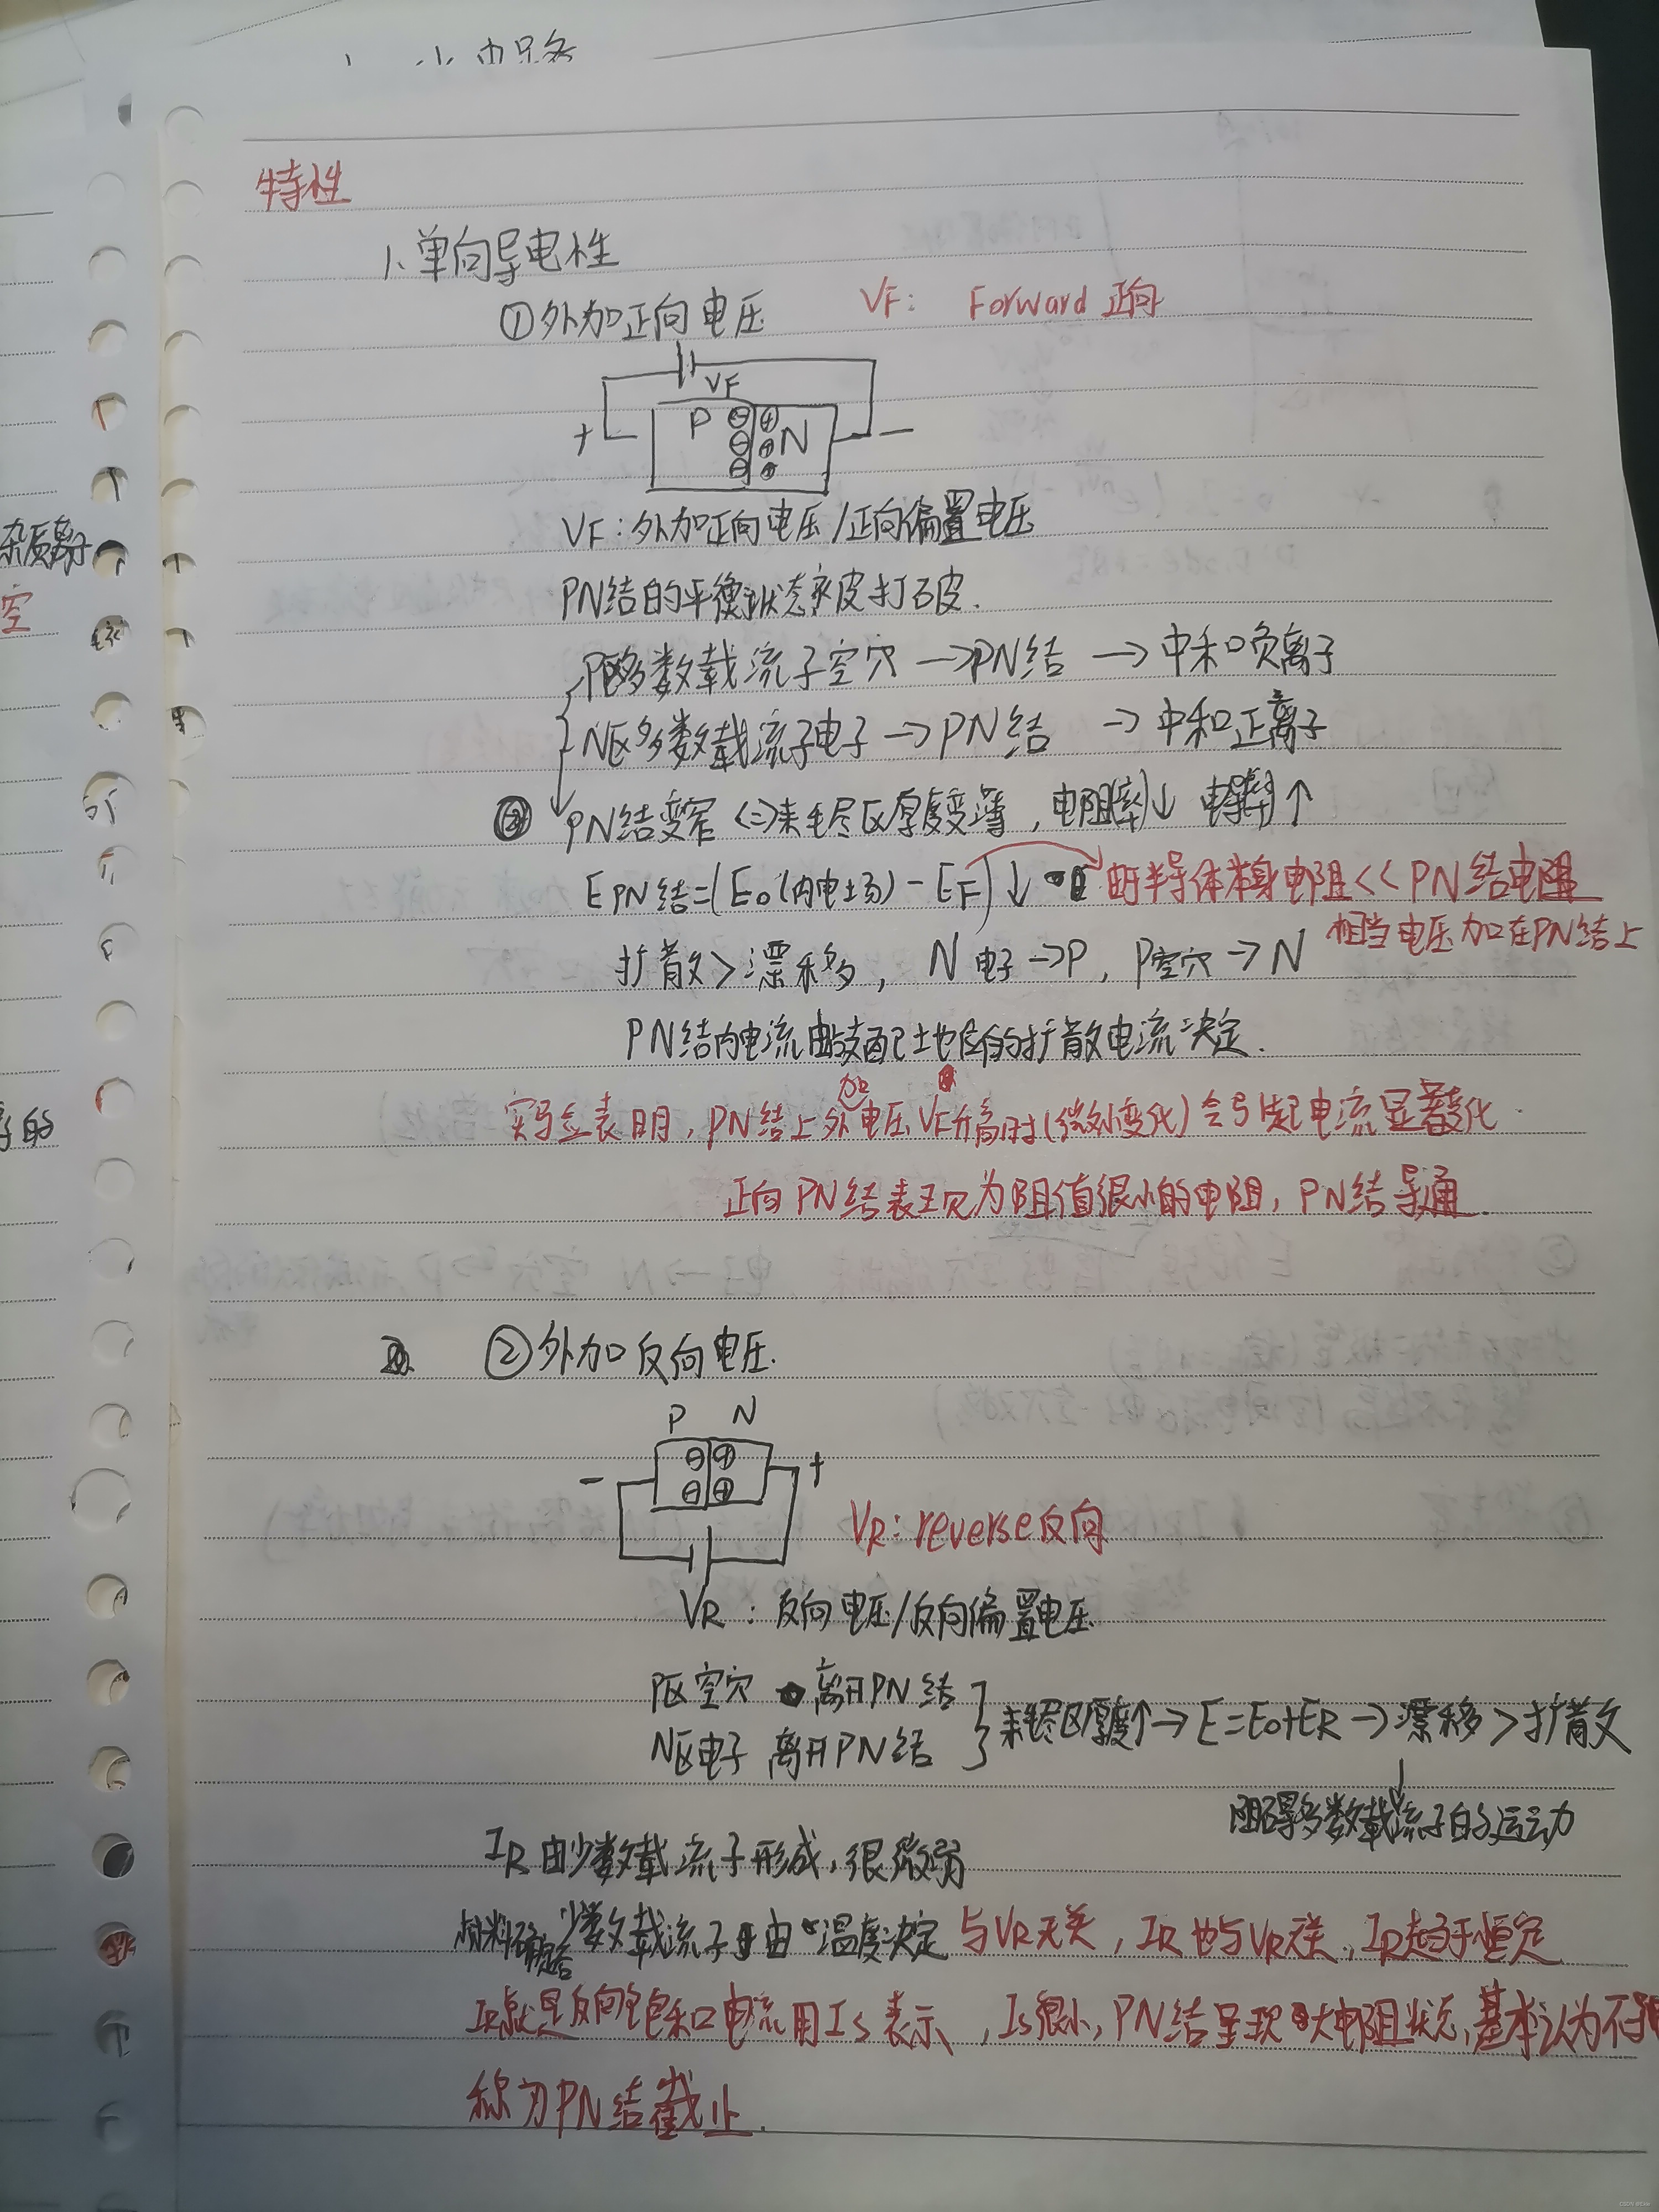 特性
1、单向导电性
①外加正向电压 VF: Forward 正向
VF
P N
+ −
VF:外加正向电压/正向偏置电压
PN结的平衡状态被打破.
P区多数载流子空穴→PN结→中和负离子
N区多数载流子电子→PN结→中和正离子
PN结变窄<=>耗尽区厚度变薄,电阻率↓ 电导率↑
E PN结=(E0(内电场)-EF)↓ 由于半导体本身电阻<<PN结电阻
相当电压加在PN结上
扩散>漂移, N电子→P, P空穴→N
PN结内电流由支配地位的扩散电流决定.
实验表明,PN结上外加电压VF升高时(微小变化)会引起电流显著变化
正向PN结表现为阻值很小的电阻,PN结导通.
②外加反向电压.
P N
− +
VR:reverse反向
VR:反向电压/反向偏置电压
P区空穴 离开PN结
N区电子 离开PN结
耗尽区厚度↑→E=E0+ER→漂移>扩散
阻碍多数载流子的运动
IR由少数载流子形成,很微弱
材料确定后 少数载流子由温度决定 与VR无关,IR也与VR无关,IR趋于恒定
IR就是反向饱和电流用IS表示,IS很小,PN结呈现大电阻状态,基本认为不导
称为PN结截止.
杂质离子
空
的